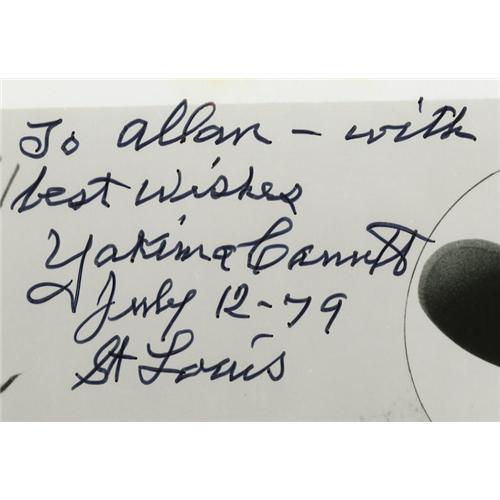 To Allan - with
best wishes
Yakima Canutt
July 12-79
St Louis